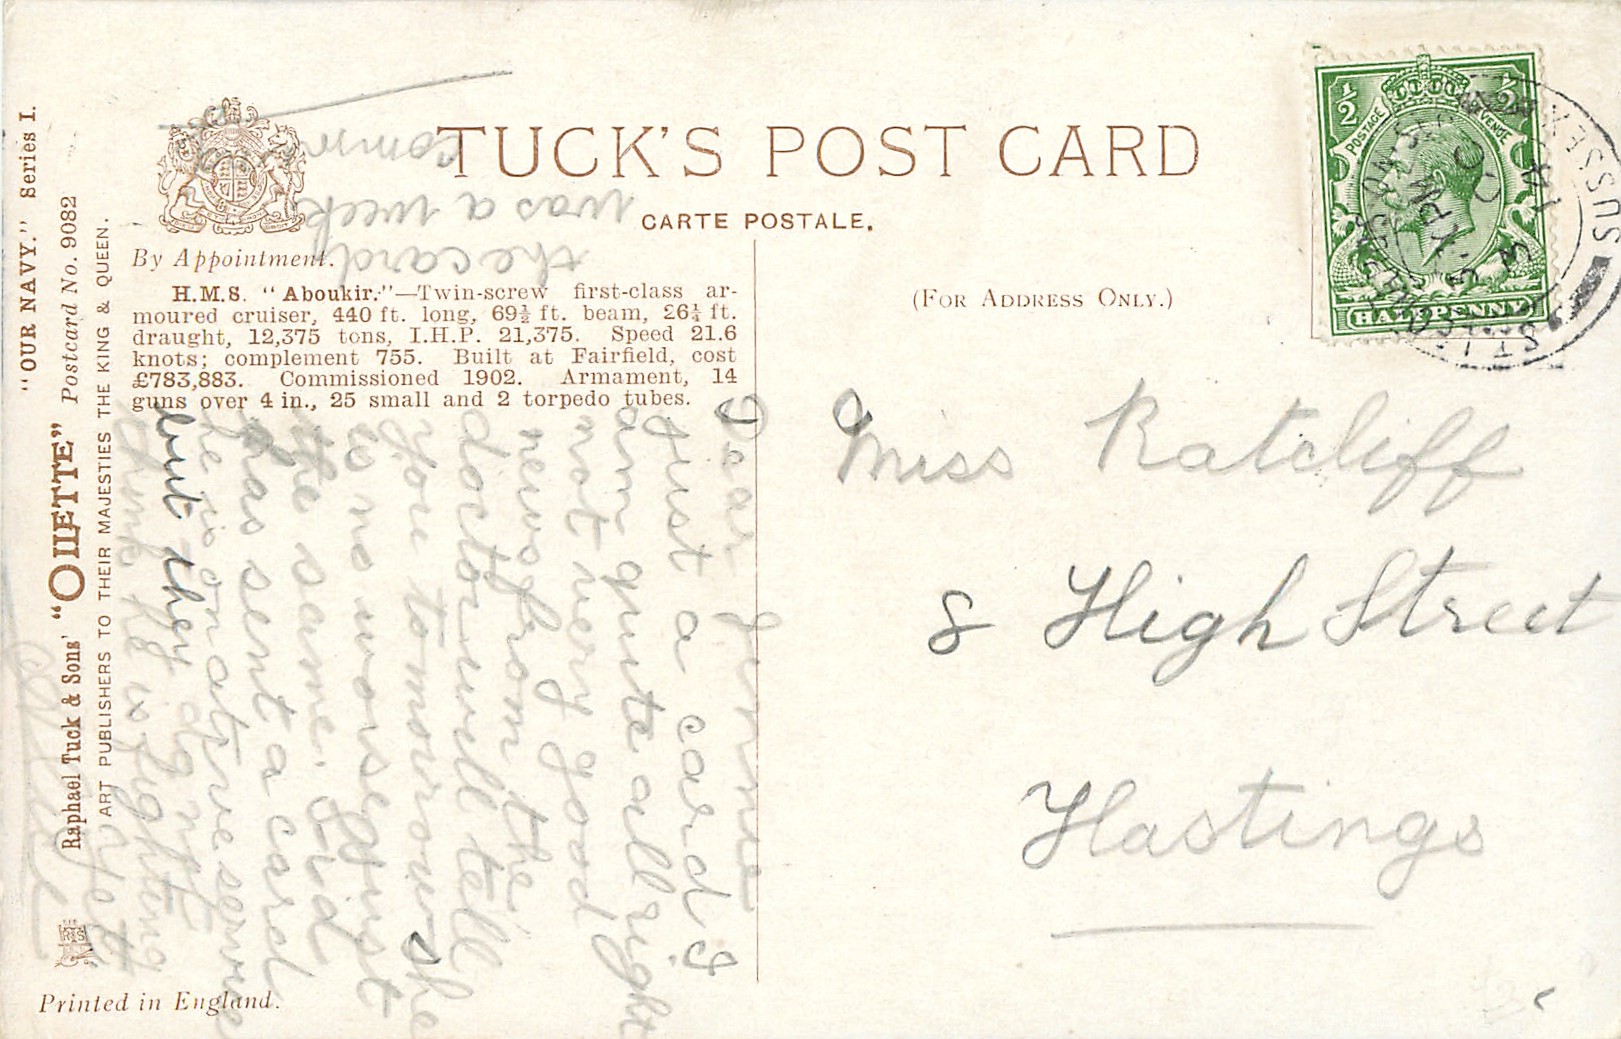 "OUR NAVY." Series I.
Raphael Tuck & Sons' "OILETTE" Postcard No. 9082
ART PUBLISHERS TO THEIR MAJESTIES THE KING & QUEEN.
TUCK'S POST CARD
CARTE POSTALE.
By Appointment.
H.M.S. "Aboukir."—Twin-screw first-class ar-
moured cruiser, 440 ft. long, 69½ ft. beam, 26¼ ft.
draught, 12,375 tons, I.H.P. 21,375. Speed 21.6
knots; complement 755. Built at Fairfield, cost
£783,883. Commissioned 1902. Armament, 14
guns over 4 in., 25 small and 2 torpedo tubes.
Printed in England.
(For Address Only.)
½ ½
POSTAGE REVENUE
HALFPENNY
SUSSEX
Miss Ratcliff
8 High Street
Hastings
Dear
Just a card I
am quite all right
not very good
news from the
doctor will tell
you tomorrow he
is no worse just
the same. Sid
has sent a card
he is on active service
but they do not
think he is fighting
yet
the card
was a week